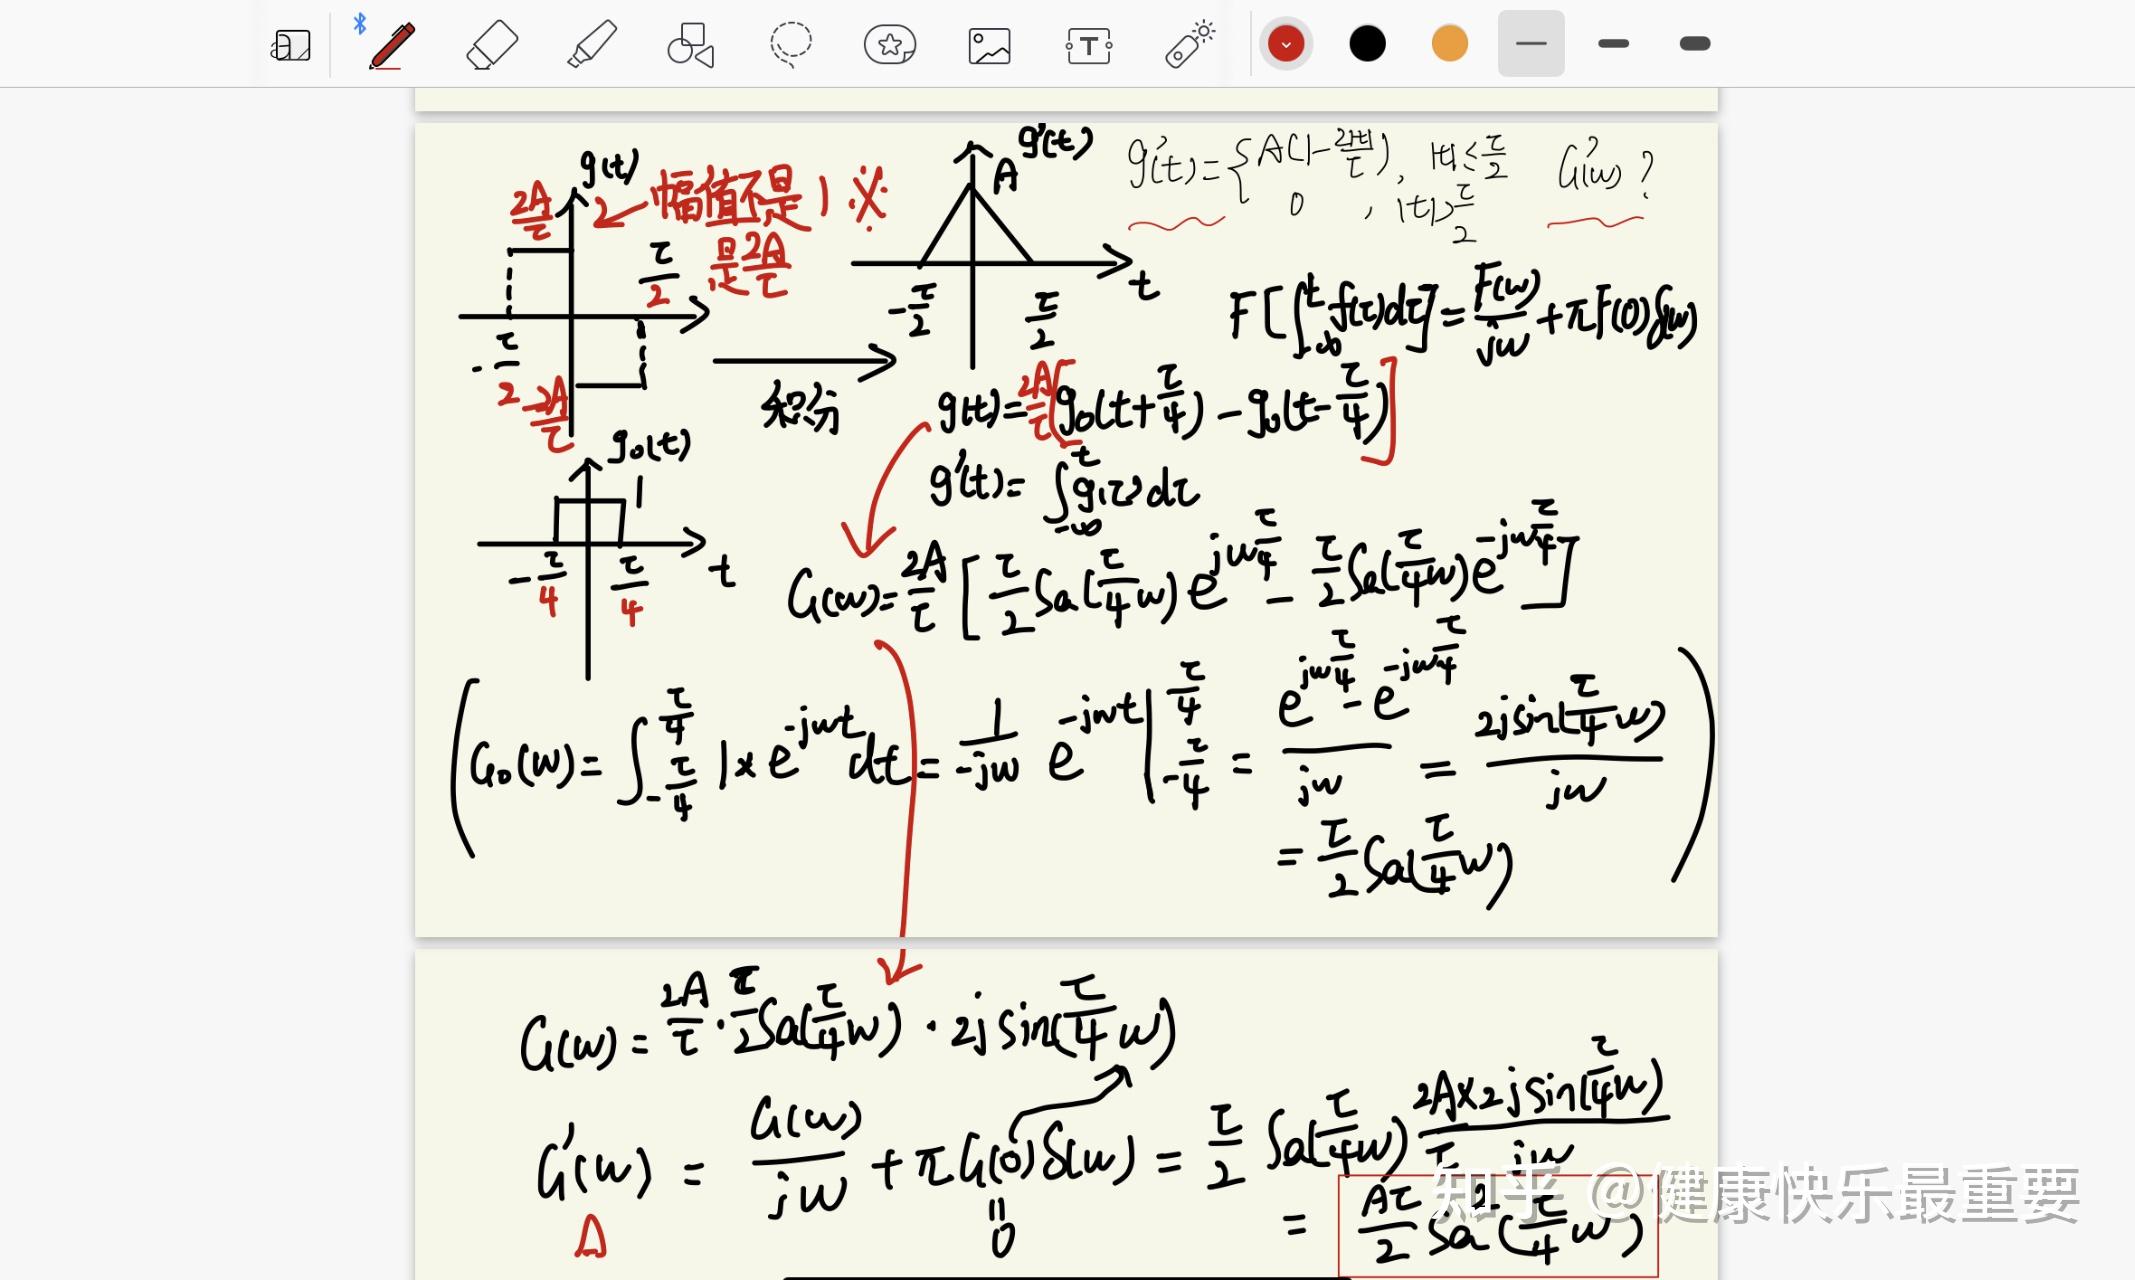 g(t)
2A/τ
幅值不是1
是2A/τ
τ/2
-τ/2
-2A/τ
积分
g'(t)
A
-τ/2
τ/2
t
g'(t)={A(1-2|t|/τ), |t|≤τ/2
0, |t|>τ/2
G'(w)?
F[∫_{-∞}^{t}f(τ)dτ]=F(w)/jw+πF(0)δ(w)
g(t)=2A/τ[g₀(t+τ/4)-g₀(t-τ/4)]
g'(t)=∫_{-∞}^{t}g(τ)dτ
g₀(t)
1
-τ/4
τ/4
t
G(w)=2A/τ[τ/2Sa(τ/4w)e^{jwτ/4}-τ/2Sa(τ/4w)e^{-jwτ/4}]
(G₀(w)=∫_{-τ/4}^{τ/4}1×e^{-jwt}dt=1/-jw e^{-jwt}|_{-τ/4}^{τ/4}=e^{jwτ/4}-e^{-jwτ/4}/jw=2jsin(τ/4w)/jw
=τ/2Sa(τ/4w))
G(w)=2A/τ·τ/2Sa(τ/4w)·2jsin(τ/4w)
G'(w)=G(w)/jw+πG(0)δ(w)=τ/2Sa(τ/4w)2A×2jsin(τ/4w)/τjw
0
=Aτ/2Sa²(τ/4w)
知乎 @健康快乐最重要